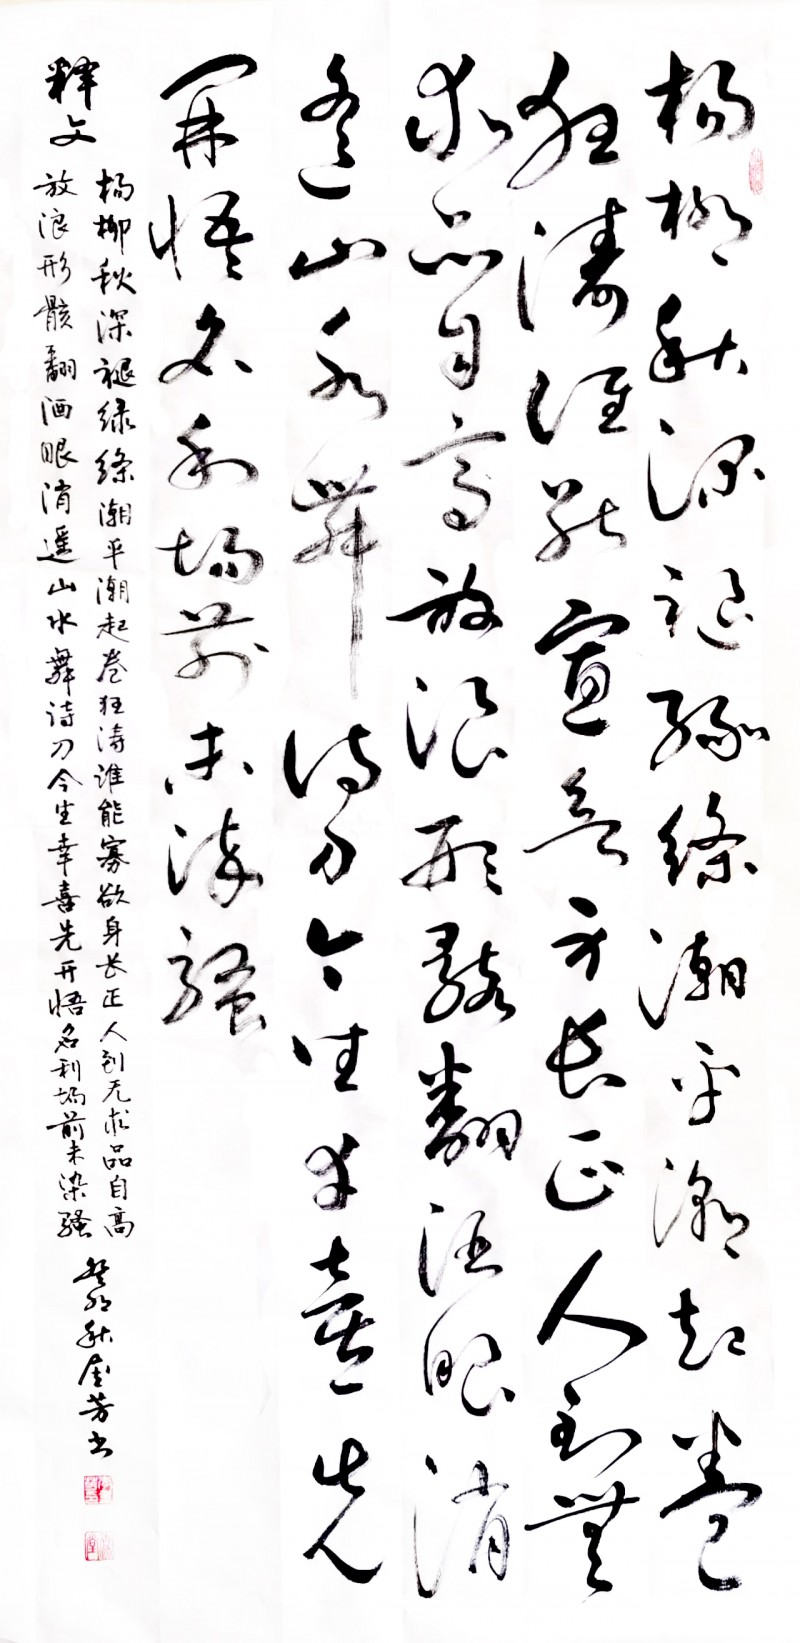 杨柳秋深褪绿绦潮平潮起卷
狂涛谁能寡欲身长正人到無
求品自高放浪形骸翻酒眼消
遥山水舞诗刀今生幸喜先
开悟名利场前未染骚
释文
杨柳秋深褪绿绦潮平潮起卷狂涛谁能寡欲身长正人到无求品自高
放浪形骸翻酒眼消遥山水舞诗刀今生幸喜先开悟名利场前未染骚
癸卯秋 芳书